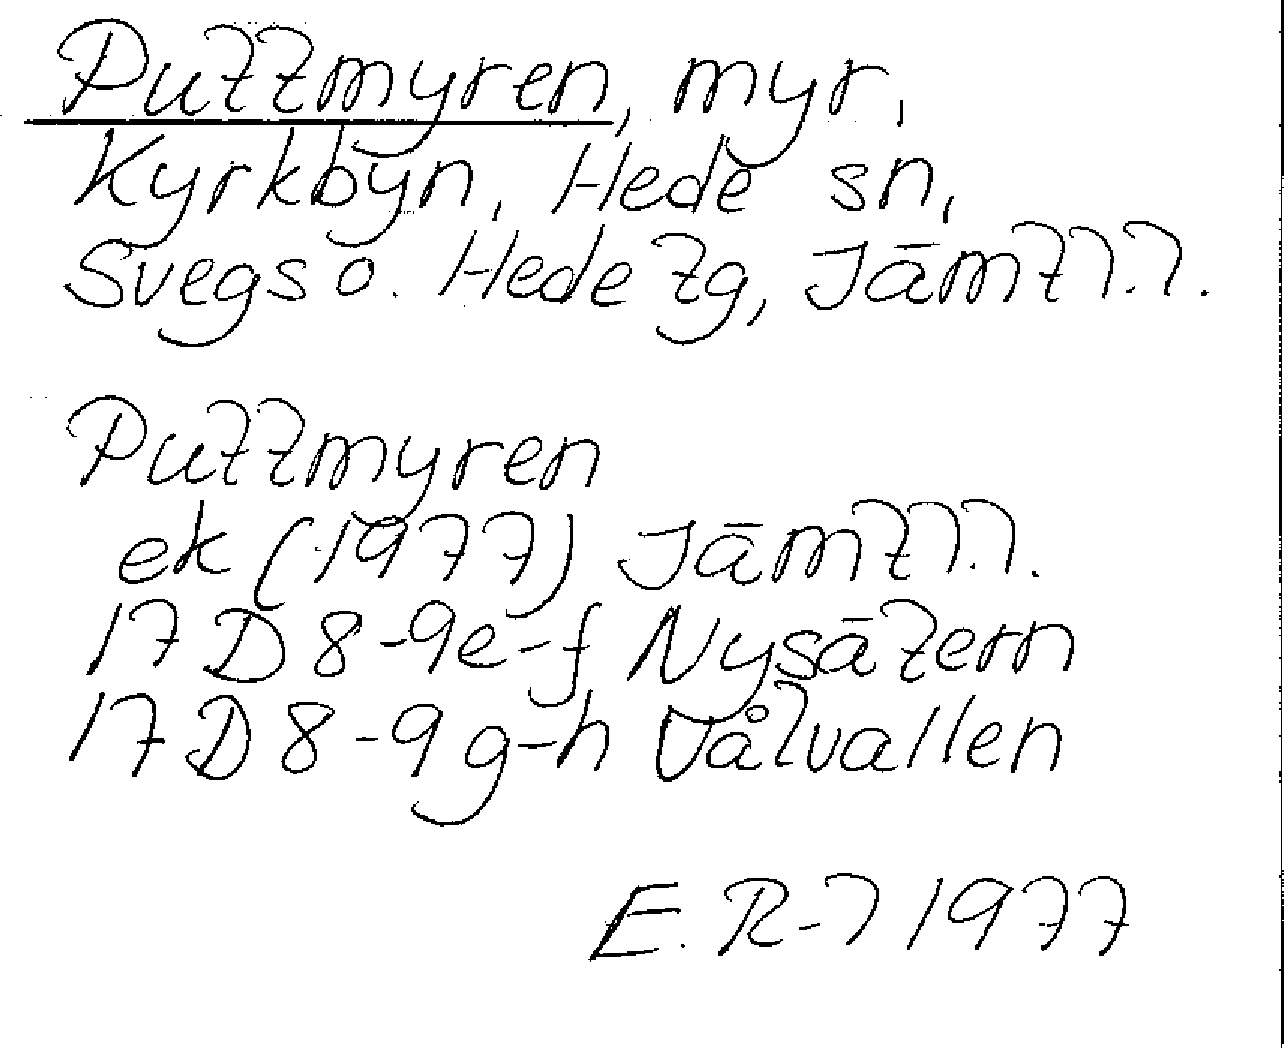 Puttmyren, myr,
Kyrkbyn, Hede sn,
Svegs o. Hede tg, Jämtl.l.
Puttmyren
ek (1977) Jämtl.l.
17 D 8-9e-f Nysätern
17 D 8-9 g-h Vålvallen
E. R-l 1977